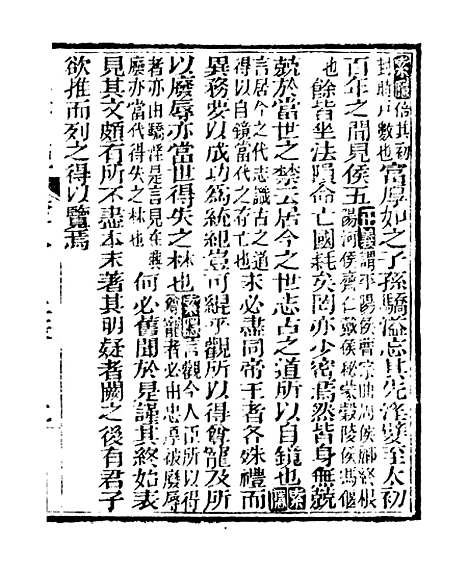 索隱倍其初封時戶數也富厚如之子孫驕溢忘其先淫嬖至太初
百年之間見侯五正義謂平陽侯曹宗曲周侯酈終根陽河侯齊仁戴侯秘蒙穀陵侯馮偃
也餘皆坐法隕命亡國耗矣罔亦少密焉然皆身無兢
兢於當世之禁云居今之世志古之道所以自鏡也索隱
言居今之代志識古之道得以自鏡當代之存亡也未必盡同帝王者各殊禮而
異務要以成功爲統紀豈可緄乎觀所以得尊寵及所
以廢辱亦當世得失之林也索隱言觀今人臣所以得尊寵者必由忠厚被廢辱
者亦由驕淫是言見在興廢亦當代得失之林也何必舊聞於是謹其終始表
見其文頗有所不盡本末著其明疑者闕之後有君子
欲推而列之得以覽焉